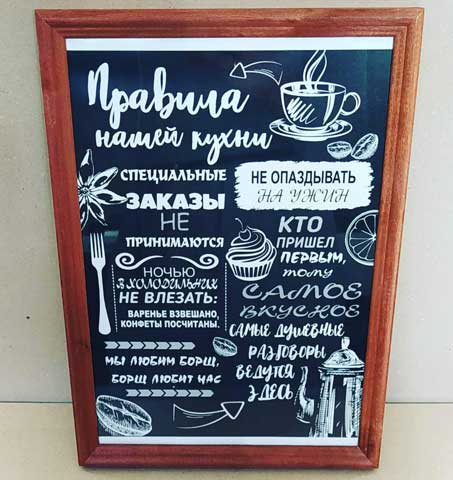 Правила
нашей кухни
СПЕЦИАЛЬНЫЕ
ЗАКАЗЫ
НЕ
ПРИНИМАЮТСЯ
НОЧЬЮ
В ХОЛОДИЛЬНИК
НЕ ВЛЕЗАТЬ:
ВАРЕНЬЕ ВЗВЕШАНО,
КОНФЕТЫ ПОСЧИТАНЫ.
МЫ ЛЮБИМ БОРЩ,
БОРЩ ЛЮБИТ НАС
НЕ ОПАЗДЫВАТЬ
НА УЖИН
КТО
ПРИШЕЛ
ПЕРВЫМ,
тому
САМОЕ
ВКУСНОЕ
САМЫЕ ДУШЕВНЫЕ
РАЗГОВОРЫ
ВЕДУТСЯ
ЗДЕСЬ